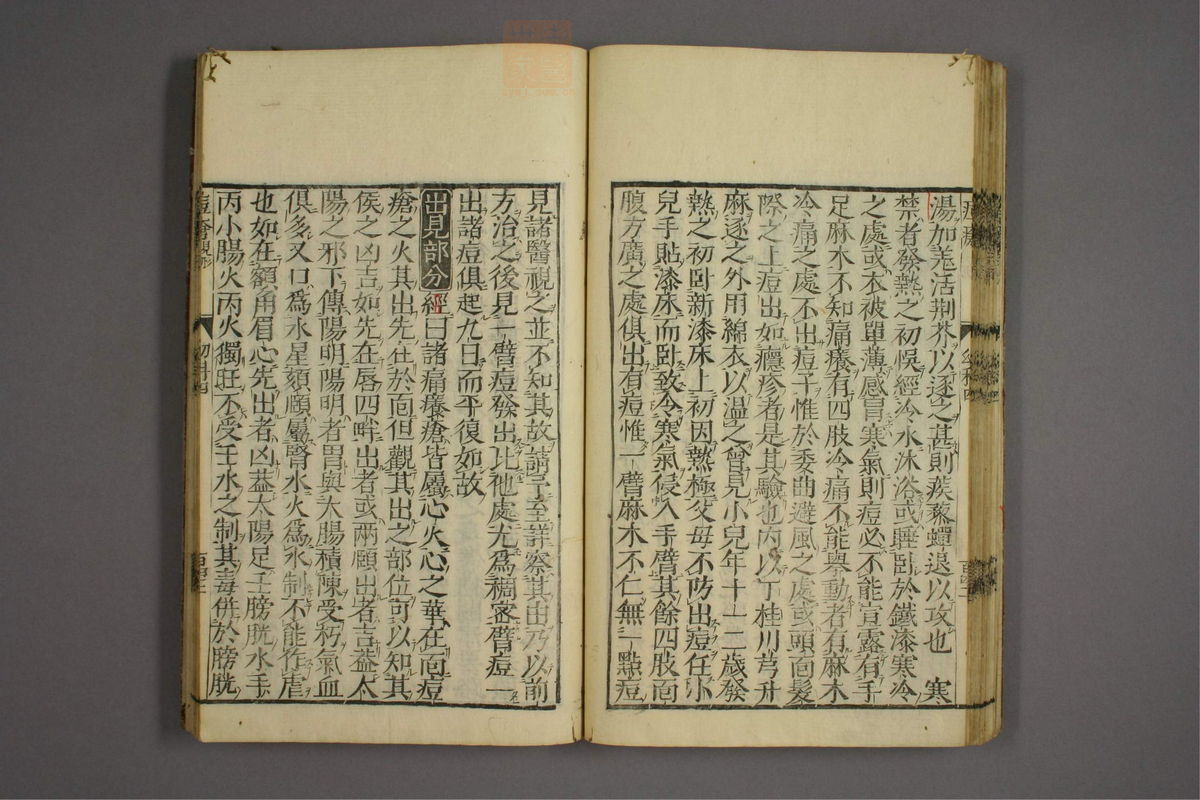 湯加羗活荆芥以逐之甚則蒺藜蟬退以攻也　寒
禁者發熱之初悞經冷水沐浴或睡卧於鐵漆寒冷
之處或衣被單薄感冒寒氣則痘必不能宣露有手
足麻木不知痛癢有四肢冷痛不能舉動者有麻木
冷痛之處不出痘子惟於委曲避風之處或頭靣髮
際之上痘出如癮疹者是其驗也内以丁桂川芎升
麻逐之外用綿衣以温之曾見小兒年十一二歲發
熱之初卧新漆床上初因熱極父母不防出痘任小
兒手貼漆床而卧致令寒氣侵入手臂其餘四肢靣
腹方廣之處俱出有痘惟一臂麻木不仁無一點痘
見諸醫視之並不知其故請予至詳察其由乃以前
方治之後見一臂痘發出比他處尤爲稠密臂痘一
出諸痘俱起九日而平復如故
出見部分 經曰諸痛癢瘡皆屬心火心之華在靣痘
瘡之火其出先在於靣但觀其出之部位可以知其
侯之凶吉如先在唇四畔出者或兩頥出者吉葢太
陽之邪下傳陽明陽明者胃與大腸積陳受朽氣血
俱多又口爲水星頦頥屬腎水火爲水制不能作虐
也如在額角眉心先出者凶葢太陽足壬膀胱水手
丙小腸火丙火獨旺不受壬水之制其毒併於膀胱